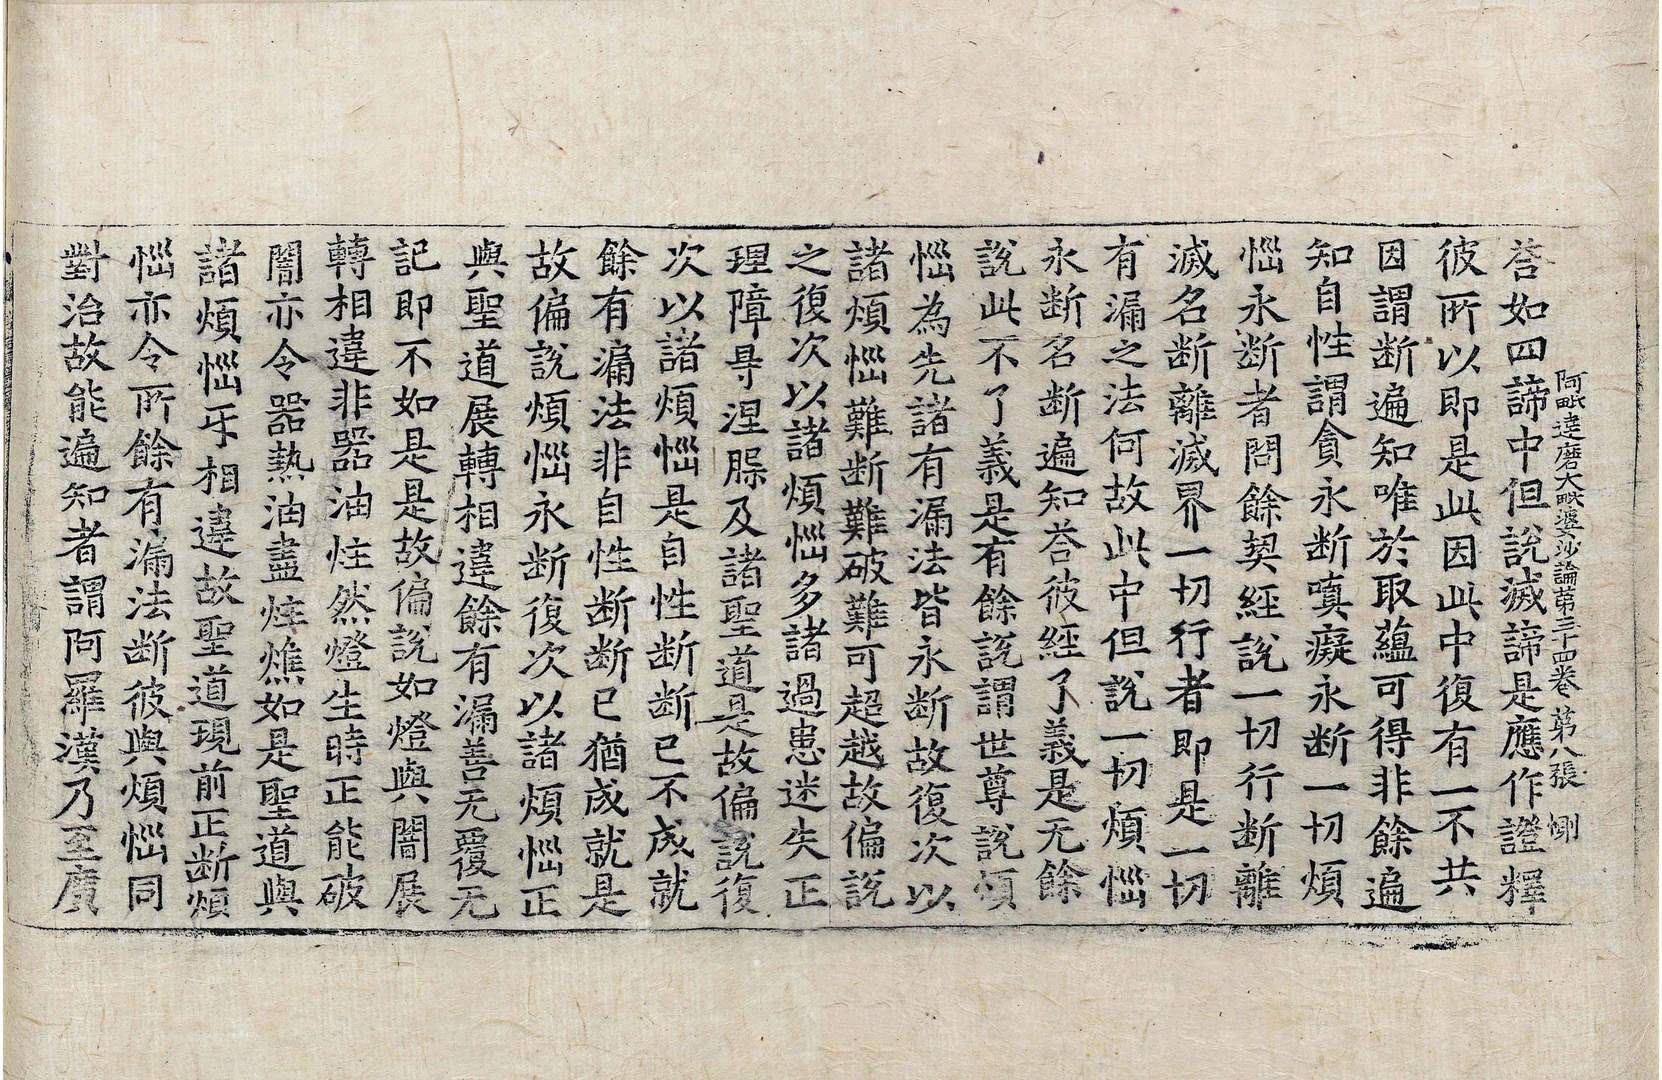 阿毗達磨大毗婆沙論第三十四卷 第八張 惻
荅如四諦中但說滅諦是應作證釋
彼所以即是此因此中復有一不共
因謂斷遍知唯於取蘊可得非餘遍
知自性謂貪永斷瞋癡永斷一切煩
惱永斷者問餘契經說一切行斷離
滅名斷離滅界一切行者即是一切
有漏之法何故此中但說一切煩惱
永斷名斷遍知荅彼經了義是无餘
說此不了義是有餘說謂世尊說煩
惱為先諸有漏法皆永斷故復次以
諸煩惱難斷難破難可超越故偏說
之復次以諸煩惱多諸過患迷失正
理障㝵涅槃及諸聖道是故偏說復
次以諸煩惱是自性斷斷已不成就
餘有漏法非自性斷斷已猶成就是
故偏說煩惱永斷復次以諸煩惱正
與聖道展轉相違餘有漏善无覆无
記即不如是是故偏說如燈與闇展
轉相違非器油炷然燈生時正能破
闇亦令器熱油盡炷燋如是聖道與
諸煩惱㸦相違故聖道現前正斷煩
惱亦令所餘有漏法斷彼與煩惱同
對治故能遍知者謂阿羅漢乃至廣